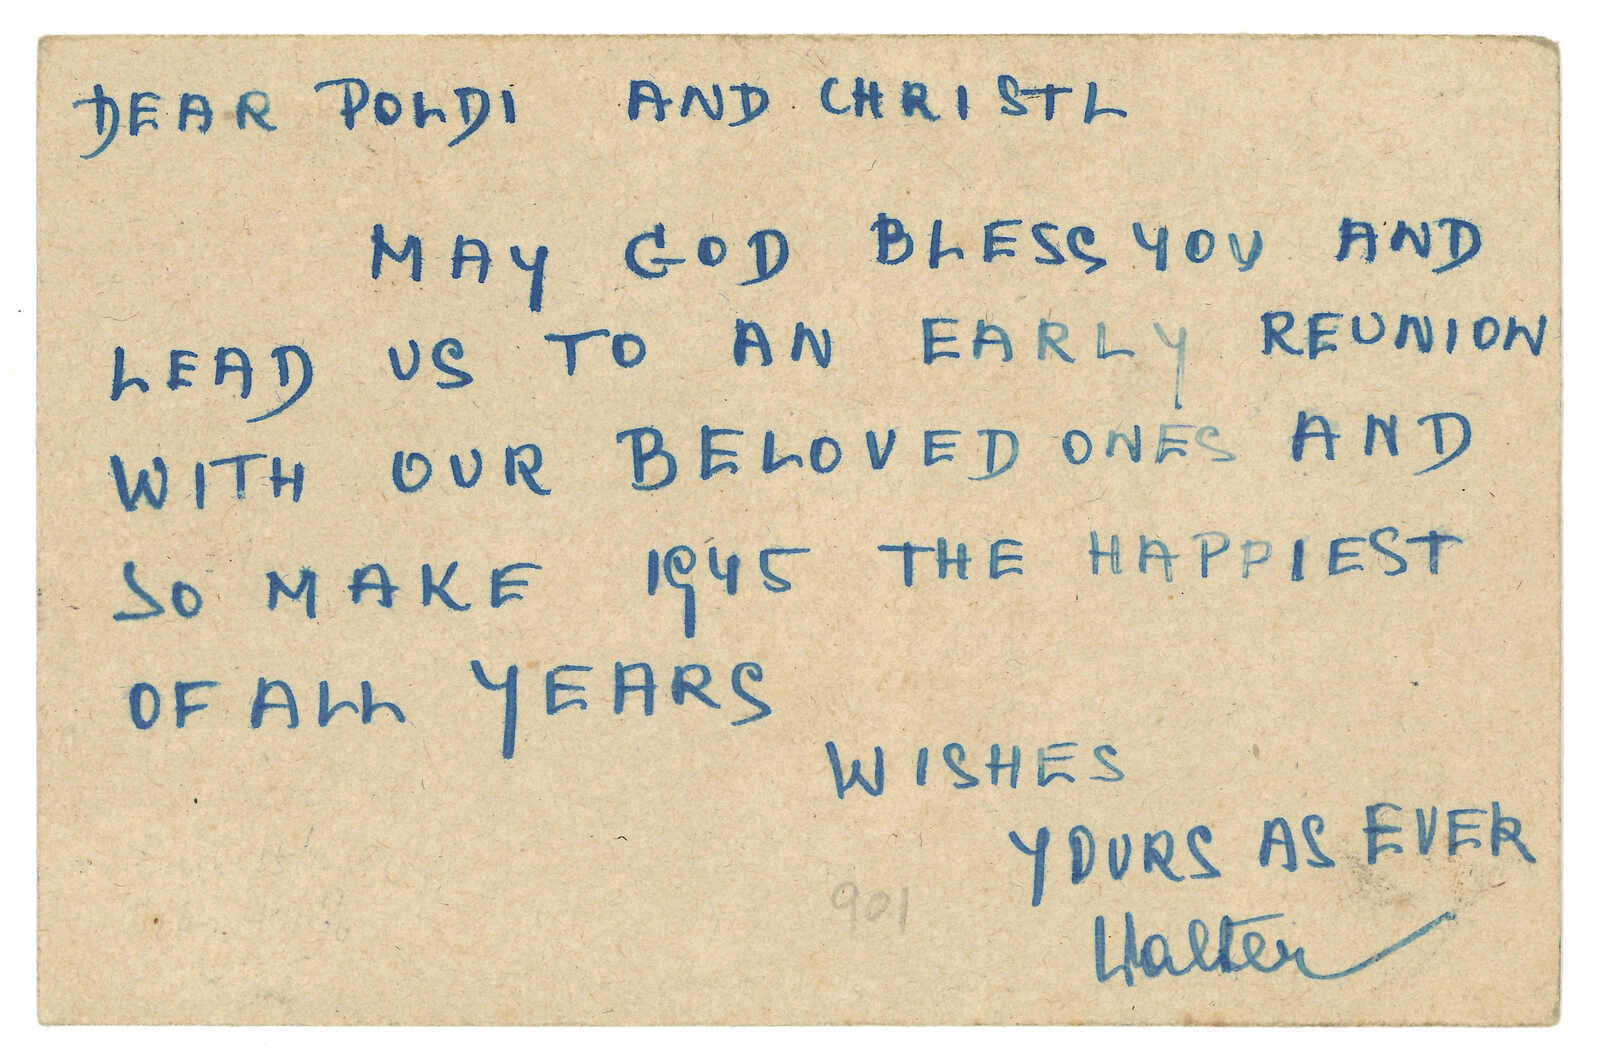 DEAR POLDI AND CHRISTL
MAY GOD BLESS YOU AND
LEAD US TO AN EARLY REUNION
WITH OUR BELOVED ONES AND
SO MAKE 1945 THE HAPPIEST
OF ALL YEARS
WISHES
YOURS AS EVER
901
Walter